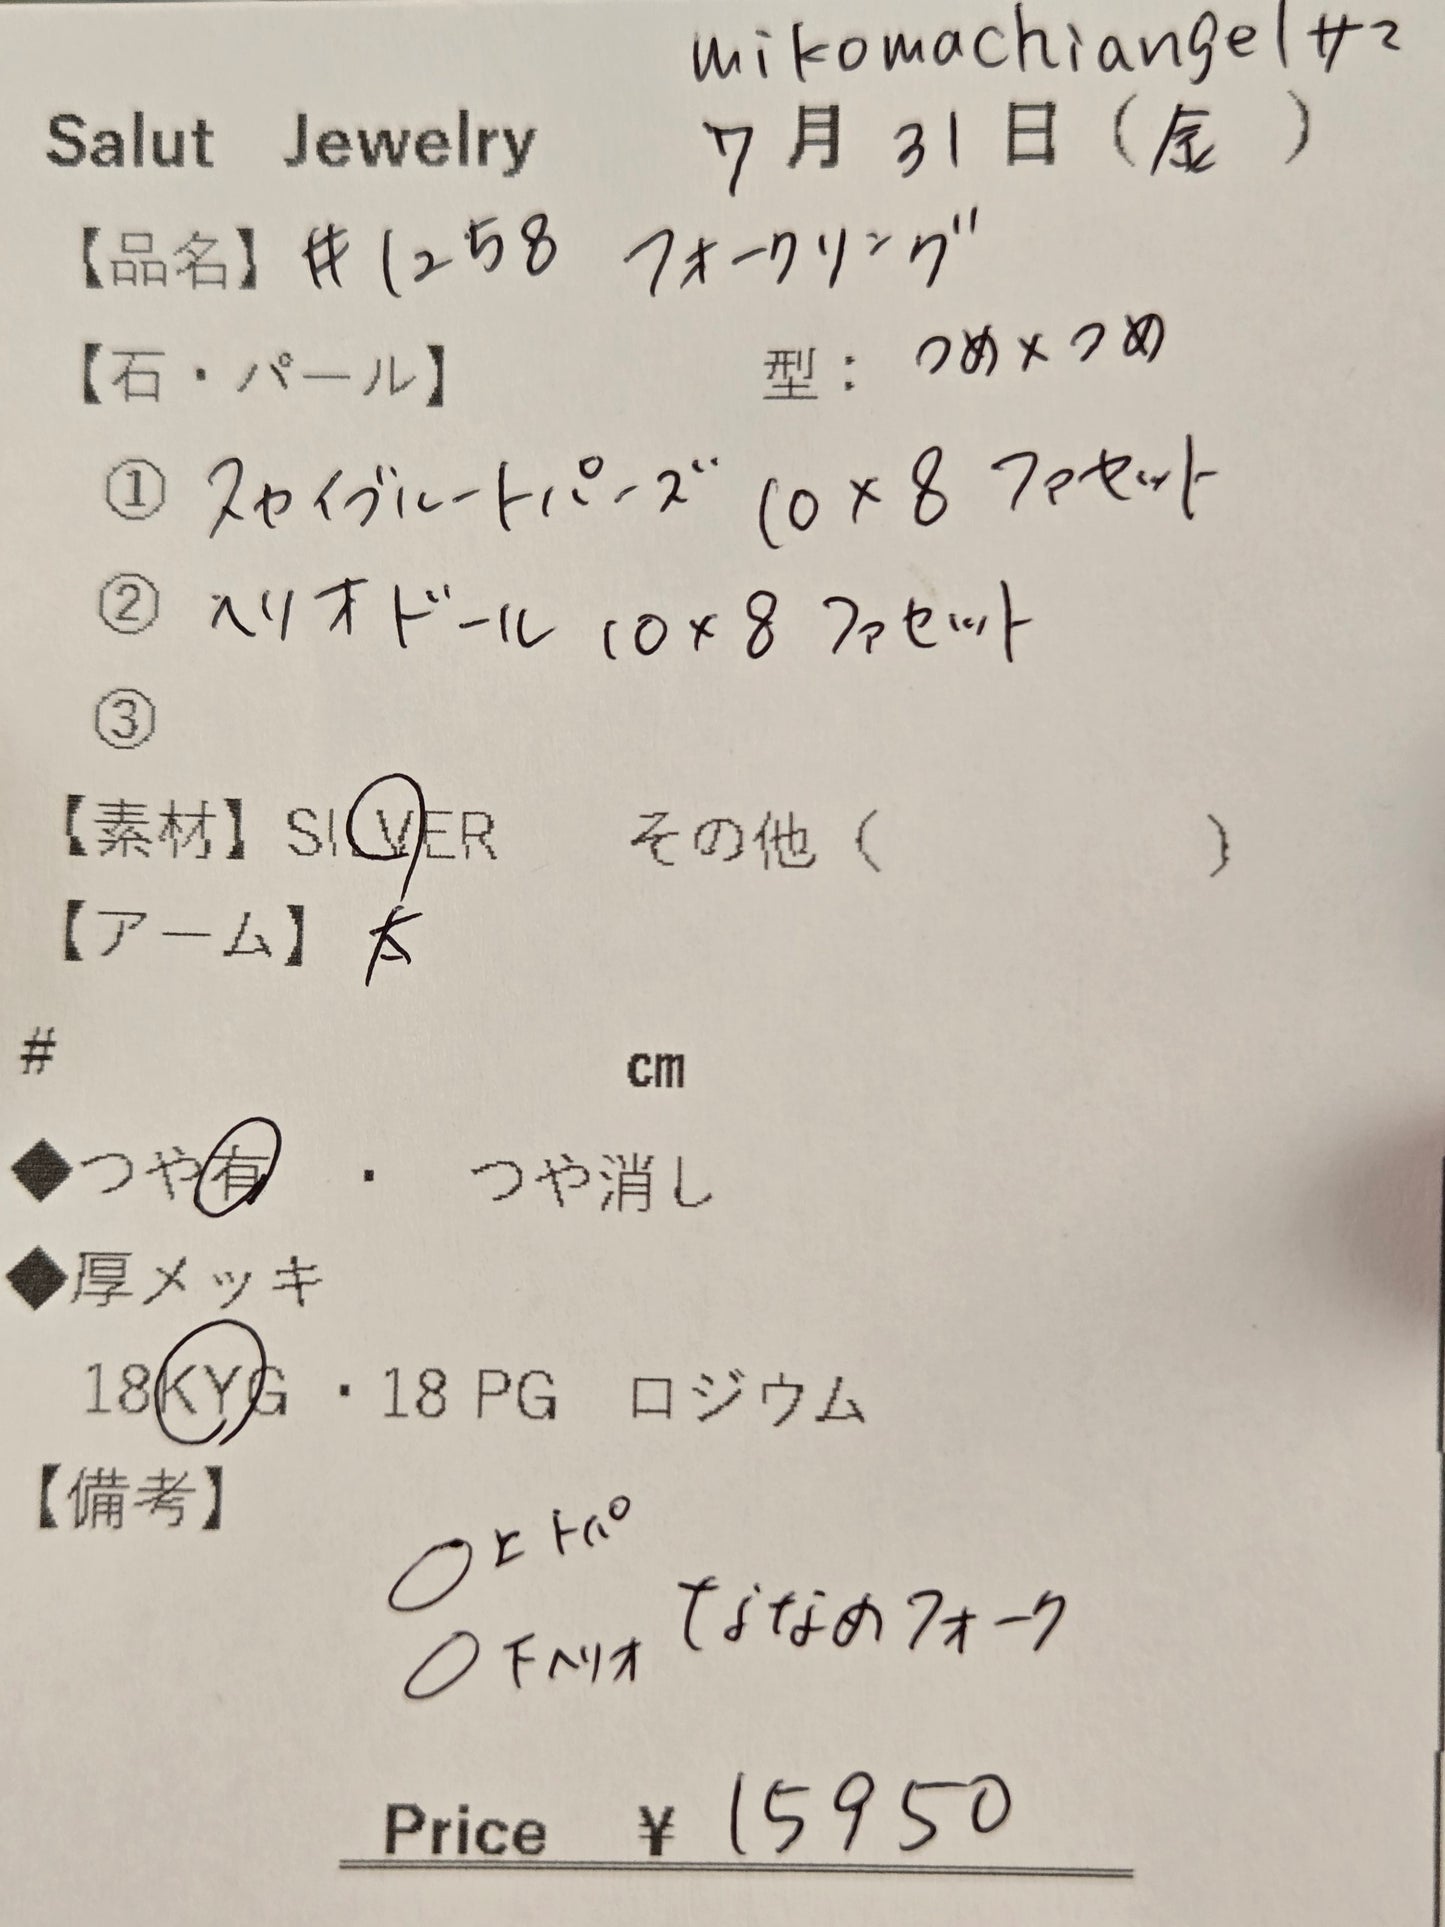 mikomachiangelサマ
Salut Jewelry 7月31日(金)
【品名】#1258 フォークリング
【石・パール】 型：つめ×つめ
① スカイブルートパーズ 10×8 ファセット
② ヘリオドール 10×8 ファセット
③
【素材】SILVER その他（ ）
【アーム】
# cm
◆つや有 ・ つや消し
◆厚メッキ
18KYG ・18 PG ロジウム
【備考】
上 トパ
下 ヘリオ ななめフォーク
Price ¥ 15950